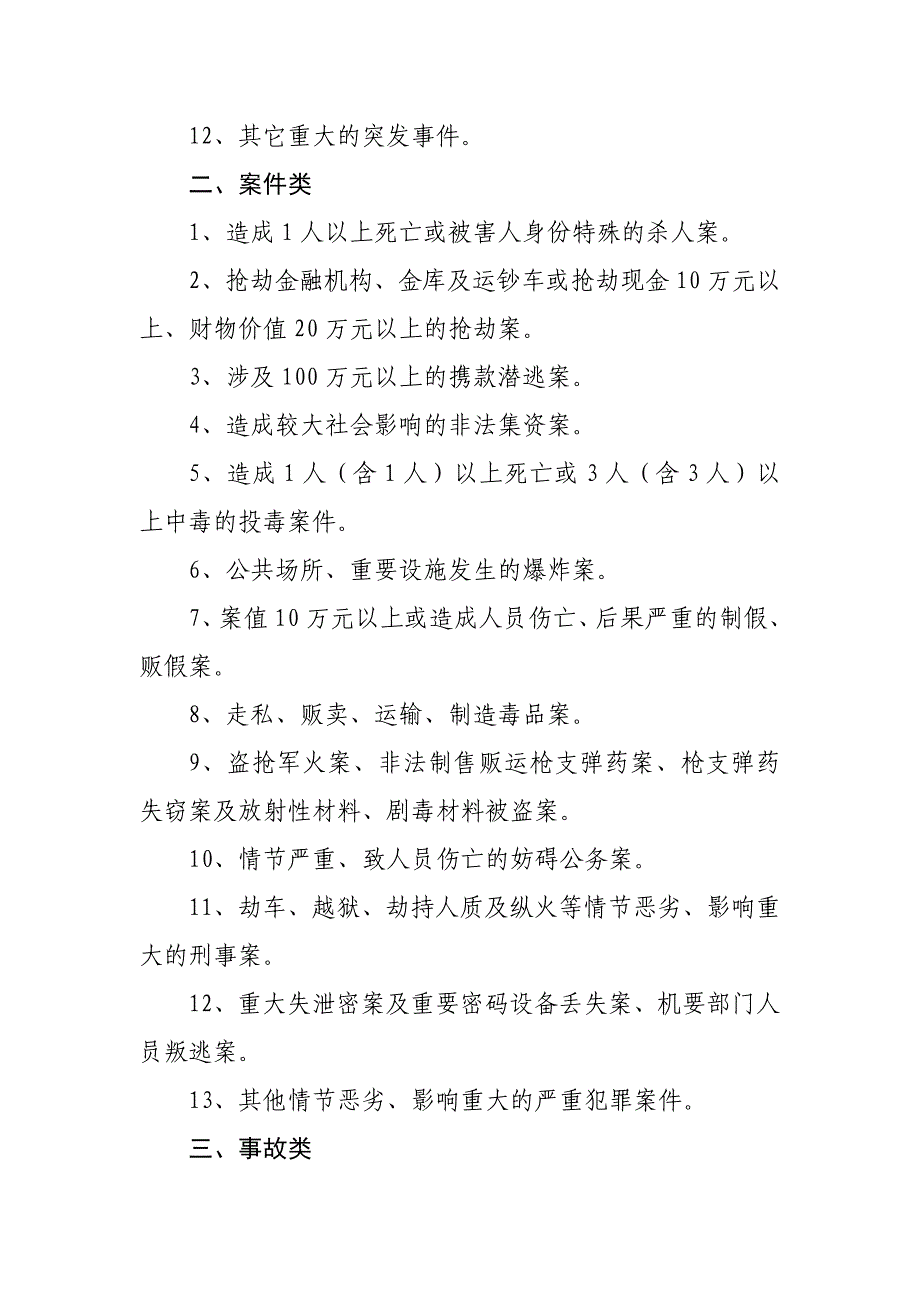 12、其它重大的突发事件。
二、案件类
1、造成 1 人以上死亡或被害人身份特殊的杀人案。
2、抢劫金融机构、金库及运钞车或抢劫现金 10 万元以
上、财物价值 20 万元以上的抢劫案。
3、涉及 100 万元以上的携款潜逃案。
4、造成较大社会影响的非法集资案。
5、造成 1 人（含 1 人）以上死亡或 3 人（含 3 人）以
上中毒的投毒案件。
6、公共场所、重要设施发生的爆炸案。
7、案值 10 万元以上或造成人员伤亡、后果严重的制假、
贩假案。
8、走私、贩卖、运输、制造毒品案。
9、盗抢军火案、非法制售贩运枪支弹药案、枪支弹药
失窃案及放射性材料、剧毒材料被盗案。
10、情节严重、致人员伤亡的妨碍公务案。
11、劫车、越狱、劫持人质及纵火等情节恶劣、影响重
大的刑事案。
12、重大失泄密案及重要密码设备丢失案、机要部门人
员叛逃案。
13、其他情节恶劣、影响重大的严重犯罪案件。
三、事故类